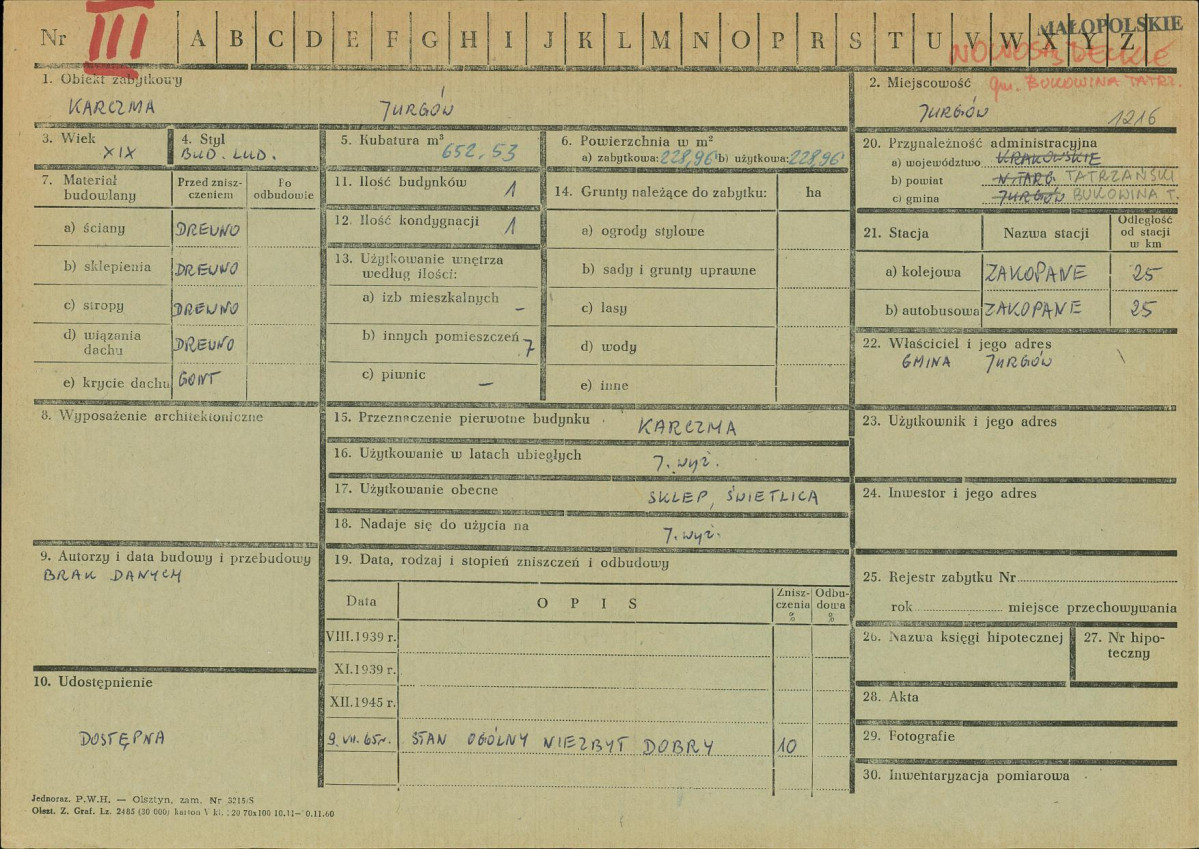 Nr III A B C D E F G H I J K L M N O P R S T U V W X Y Z
MAŁOPOLSKIE
NOWOSĄDECKIE
gm. BUKOWINA TATRZ.
1. Obiekt zabytkowy
KARCZMA JURGÓW
2. Miejscowość
JURGÓW 1216
3. Wiek
XIX
4. Styl
BUD. LUD.
5. Kubatura m³
652,53
6. Powierzchnia w m²
a) zabytkowa: 228,96 b) użytkowa: 228,96
7. Materiał budowlany
Przed zniszczeniem
Po odbudowie
a) ściany DREWNO
b) sklepienia DREWNO
c) stropy DREWNO
d) wiązania dachu DREWNO
e) krycie dachu GONT
8. Wyposażenie architektoniczne
9. Autorzy i data budowy i przebudowy
BRAK DANYCH
10. Udostępnienie
DOSTĘPNA
11. Ilość budynków 1
12. Ilość kondygnacji 1
13. Użytkowanie wnętrza według ilości:
a) izb mieszkalnych –
b) innych pomieszczeń 7
c) piwnic –
14. Grunty należące do zabytku: ha
a) ogrody stylowe
b) sady i grunty uprawne
c) lasy
d) wody
e) inne
15. Przeznaczenie pierwotne budynku KARCZMA
16. Użytkowanie w latach ubiegłych J. wyż.
17. Użytkowanie obecne SKLEP, ŚWIETLICA
18. Nadaje się do użycia na J. wyż.
19. Data, rodzaj i stopień zniszczeń i odbudowy
Data OPIS Zniszczenia % Odbudowa %
VIII.1939 r.
XI.1939 r.
XII.1945 r.
9. VII. 65r. STAN OGÓLNY NIEZBYT DOBRY 10
20. Przynależność administracyjna
a) województwo KRAKOWSKIE
b) powiat N. TARG TATRZAŃSKI
c) gmina JURGÓW BUKOWINA T.
21. Stacja Nazwa stacji Odległość od stacji w km
a) kolejowa ZAKOPANE 25
b) autobusowa ZAKOPANE 25
22. Właściciel i jego adres
GMINA JURGÓW
23. Użytkownik i jego adres
24. Inwestor i jego adres
25. Rejestr zabytku Nr
rok miejsce przechowywania
26. Nazwa księgi hipotecznej
27. Nr hipoteczny
28. Akta
29. Fotografie
30. Inwentaryzacja pomiarowa
Jednoraz. P.W.H. — Olsztyn, zam. Nr 3215/S
Olszt. Z. Graf. Lz. 2485 (30 000) karton V kl.